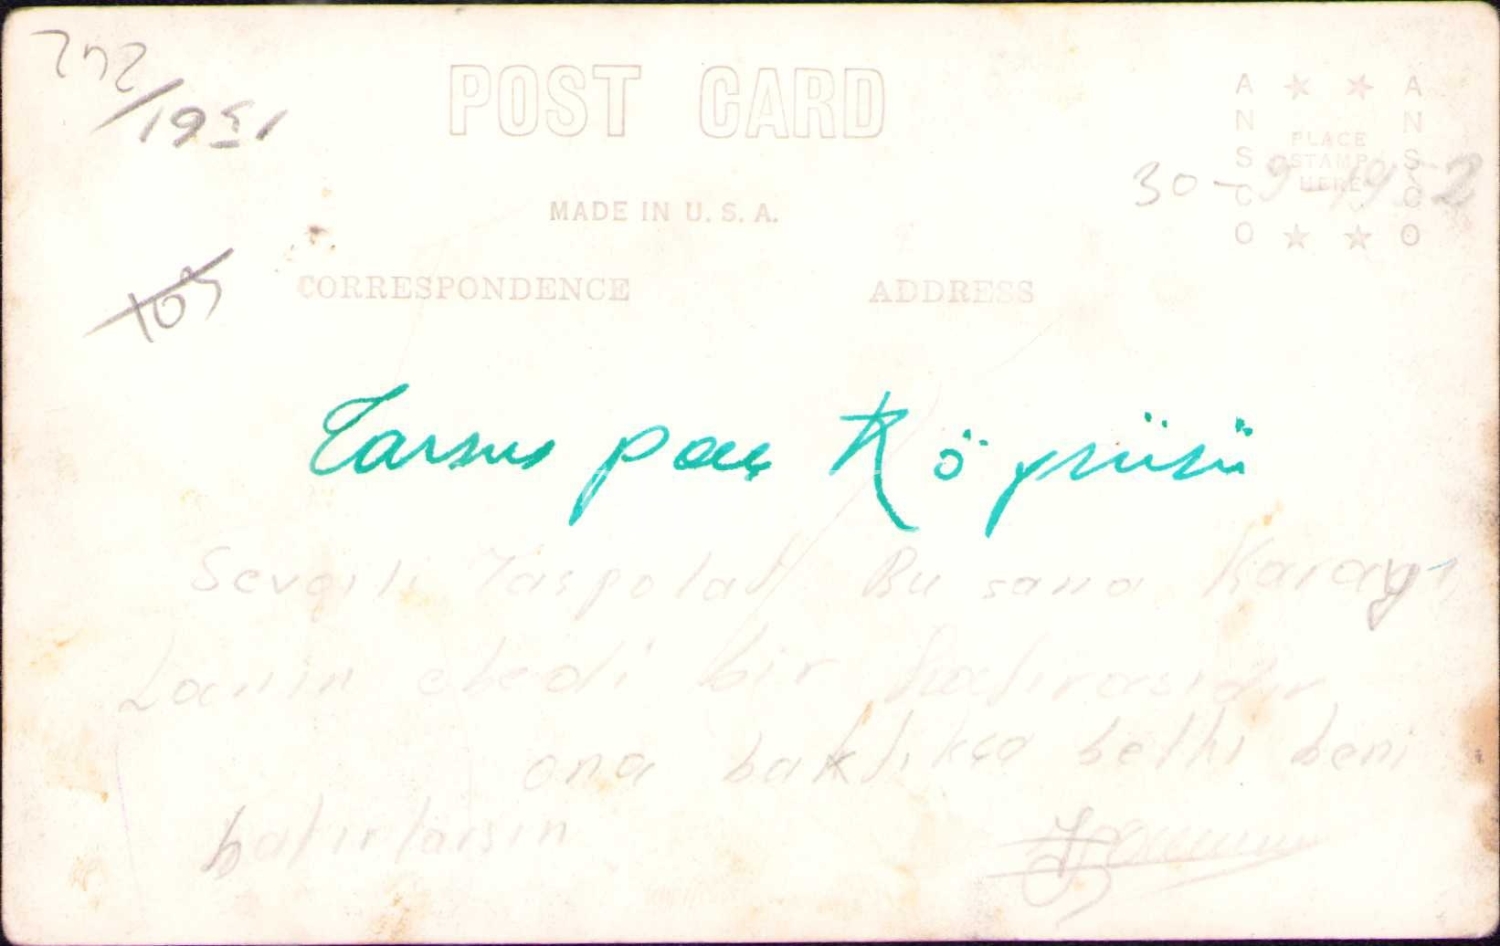 /1951
POST CARD
A ★ ★ A
N N
PLACE
S STAMP S
HERE
C C
O ★ ★ O
30-9-1952
MADE IN U.S.A.
CORRESPONDENCE ADDRESS
Tarsus paç Köprüsü
Sevgili Taspolat Bu sana Karay
lanın ebedi bir hatırasıdır
ona baktıkça belki beni
hatırlarsın